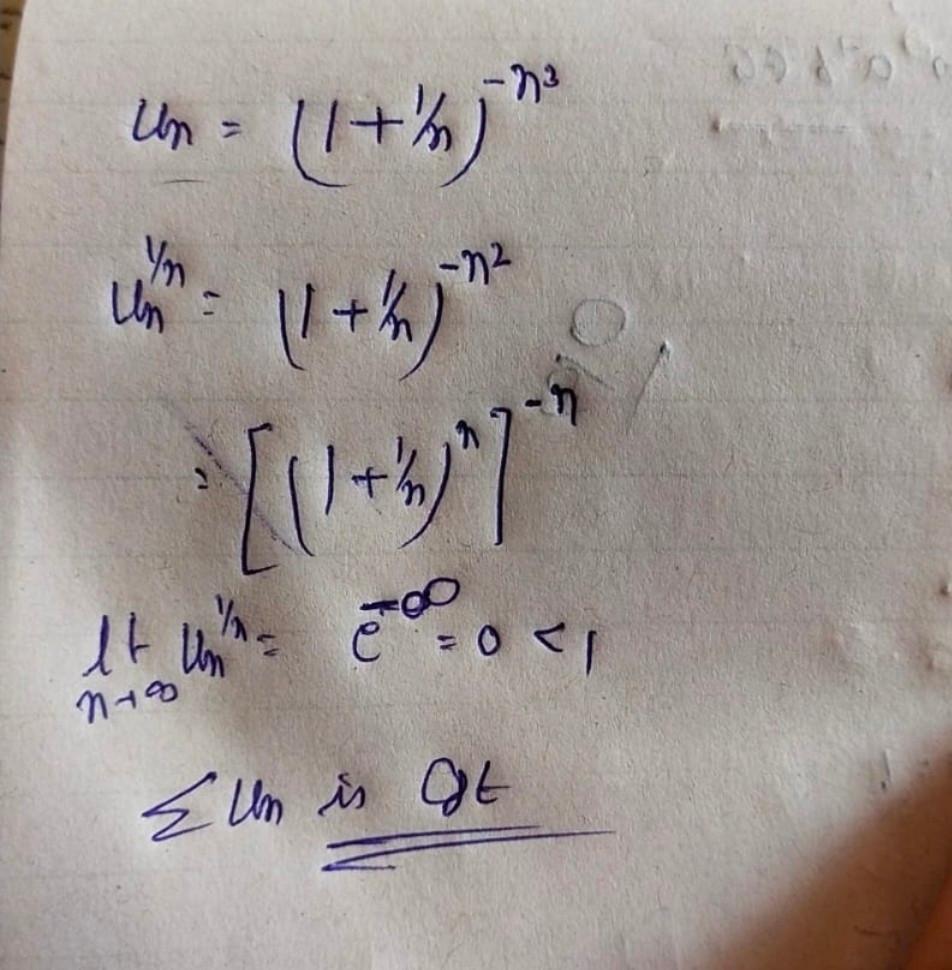 Un = (1+1/n)^-n3
Un^1/n = (1+1/n)^-n2
= [(1+1/n)^n]^-n
lt n→∞ Un^1/n = e^-∞ = 0 < 1
Σ Un is Cgt